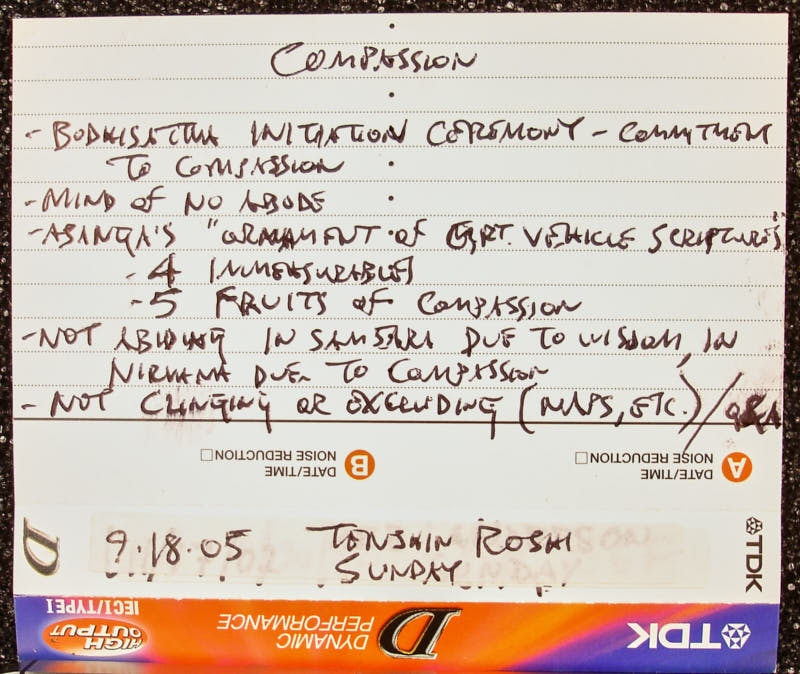 COMPASSION
- BODHISATTVA INITIATION CEREMONY - COMMITMENT
TO COMPASSION
- MIND OF NO ABODE
- ASANGA'S "ORNAMENT OF GRT. VEHICLE SCRIPTURES"
- 4 IMMEASURABLES
- 5 FRUITS OF COMPASSION
- NOT ABIDING IN SAMSARA DUE TO WISDOM, IN
NIRVANA DUE TO COMPASSION
- NOT CLINGING OR EXCLUDING (MAPS, ETC.) / Q&A
A DATE/TIME
NOISE REDUCTION
B DATE/TIME
NOISE REDUCTION
9.18.05 TENSHIN ROSHI
SUNDAY
D
TDK
TDK
D DYNAMIC
PERFORMANCE
HIGH
OUTPUT
IECI/TYPEI